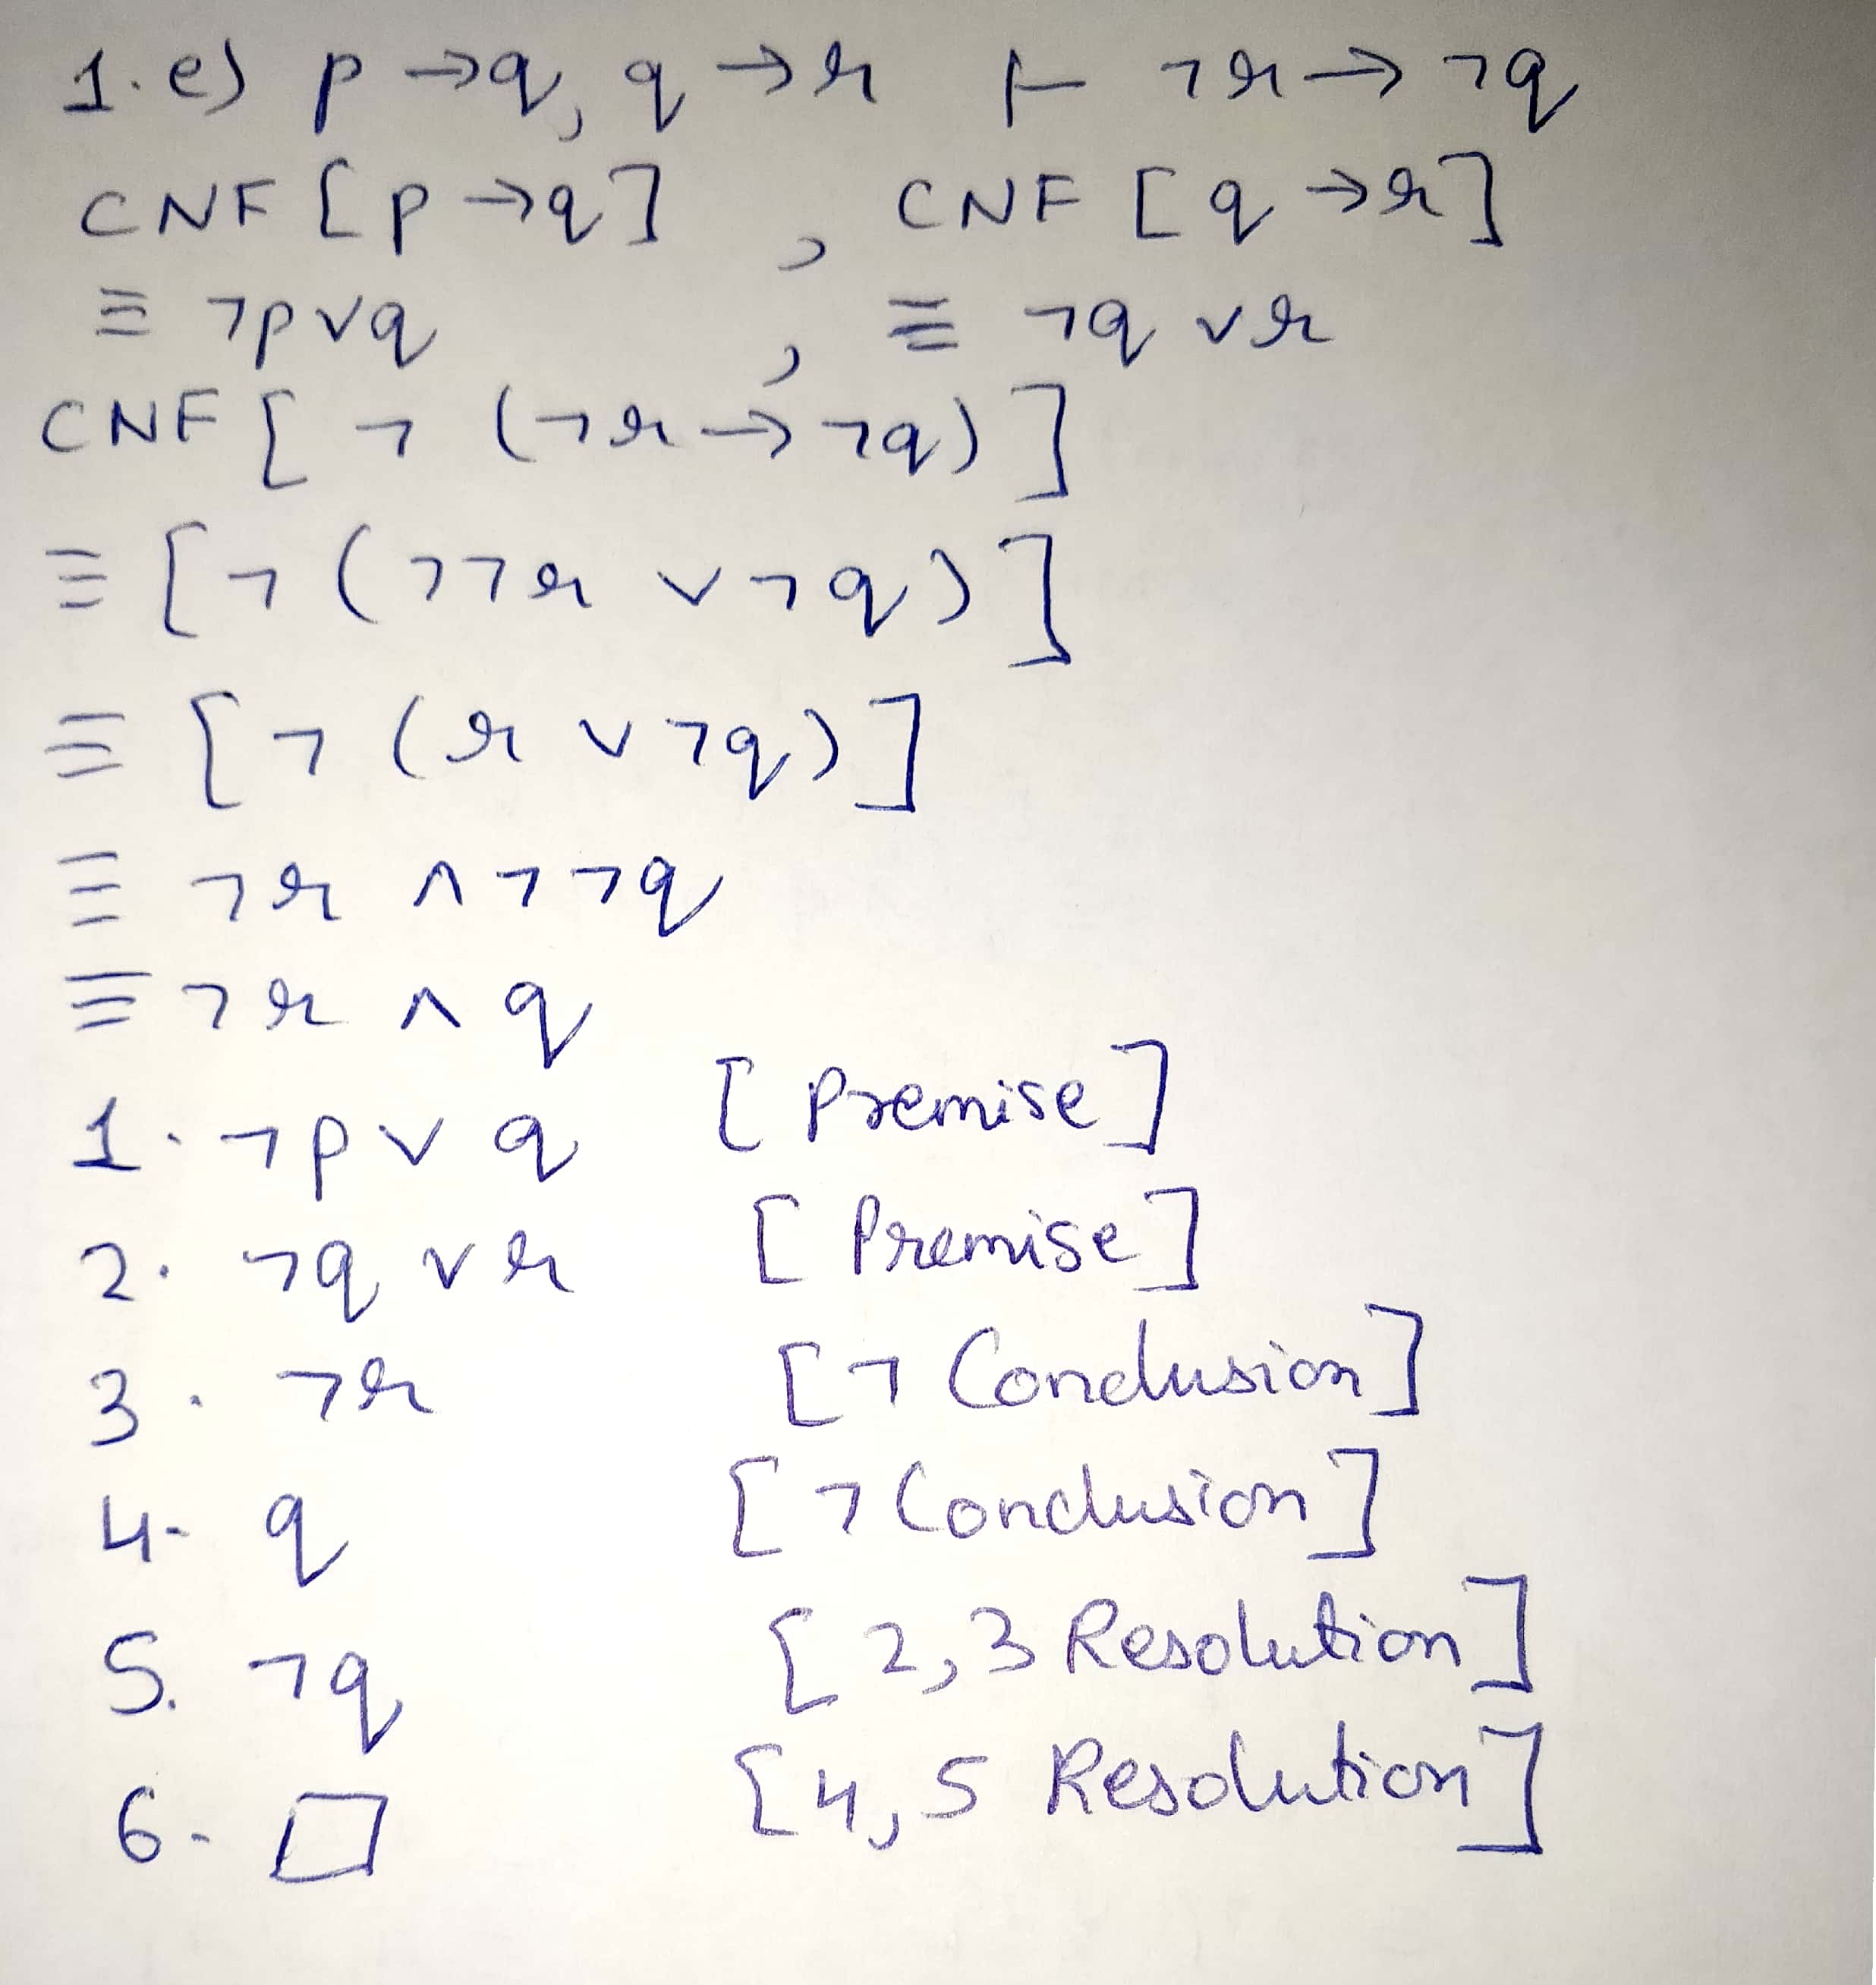 1.e) p → q, q → r ⊢ ¬r → ¬q
CNF [p → q] , CNF [q → r]
≡ ¬p ∨ q , ≡ ¬q ∨ r
CNF [ ¬ (¬r → ¬q) ]
≡ [ ¬ (¬¬r ∨ ¬q) ]
≡ [ ¬ (r ∨ ¬q) ]
≡ ¬r ∧ ¬¬q
≡ ¬r ∧ q
1. ¬p ∨ q [ Premise ]
2. ¬q ∨ r [ Premise ]
3. ¬r [ ¬ Conclusion ]
4. q [ ¬ Conclusion ]
5. ¬q [ 2,3 Resolution ]
6. □ [ 4,5 Resolution ]